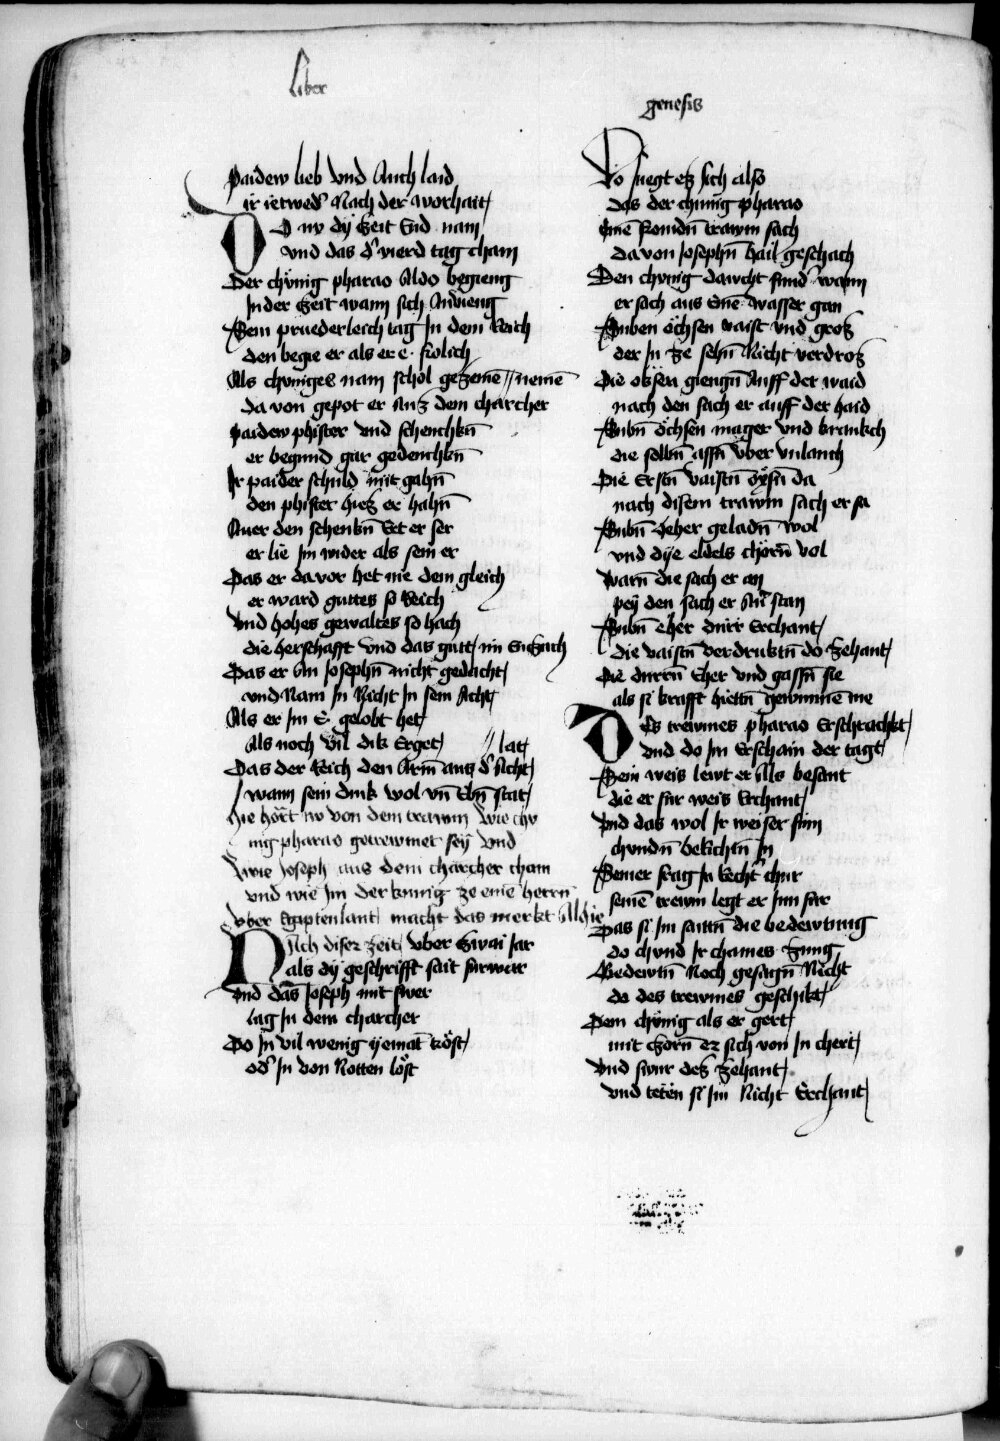 Liber
genesis
Paidew lieb vnd Auch laid
ir ietwedˀ Nach der worhait
DO nv dy̋ Zeit End nam
vnd das dˀ vierd tag cham
Der chűnig pharao Aldo begieng
In der Zeit wann sich Anvieng
Sein pruederleich tag In dem Reich
den begie er als er e frolich
Als chuniges nam schol geZemē // nemē
da von gepot er Auz dem charcher
paidew phister vnd schenchkn̄
er begund gar gedenchkn̄
Ir paider schuld mit gahn̄
den phister hiez er hahn̄
Auer den schenkn̄ Ert er ser
er lie Im wider als sein er
Das er da vor het nie dem gleich
er ward guttes so Reich
vnd hohes gewaltes so hach
die herschafft vnd das gutt im
Das er An Josephn̄ nicht gedacht
vnd Nam In Nicht In sein Acht
Als er Im E gelobt het
Als noch vil dik Erget // lat
Das der Reich den Arm̄ aus dˀ Acht
wann sein dink wol vn̄ Ebn̄ stat
hie hört nv von dem trawm wie chv
nig pharao getrewmet sey̋ vnd
wie Joseph aus dem charcher cham
vnd wie Im der kunig ze eine herrn
vber Egipten lant macht das merkt Al hie
NAch diser zeit vber Zwai Jar
als dy̋ geschrifft sait furwar
vnd das Joseph mit swer
lag In dem charcher
Do In vil wenig yemāt tröst
odˀ In von Notten löst
Do fuegt ez sich also
das der chunig pharao
Einē komdn̄ trawm sach
da von Josephn̄ hail geschach
Den chvnig dawcht wann
er sach aus Einē wasser gan
Siben öchsen vaist vnd groz
der In ze sehn̄ Nicht verdroz
Die oxsen giengn̄ Auff der waid
nach den sach er auff der haid
Sibn̄ öchsen mager vnd krankch
die selbn̄ assn̄ vber vnlanch
Die Erstn̄ vaistn̄ öxsn̄ da
nach disem trawm sach er sa
Sibn̄ Eeher geladn̄ wol
vnd dy̋e eldels chörn̄ vol
warn̄ die sach er an
pey̋ den sach er stan
Sibn̄ eher durr Erchant
die vaistn̄ verdruktn̄ do Zehant
Die durrn̄ Eher vnd gassn̄ sie
als si krafft hiettn̄ gewunnē nie
DEs trewmes pharao Erschrachkt
vnd do Im Erschain der tagt
Sein weis lewt er Als besant
die er fur weis Erchant
vnd das wol Ir weiser sinn
chvndn̄ berichtn̄ In
Seiner frag In rechtˀ chur
seinē trewm legt er Inn fur
Das si Im saittn̄ die bedewtung
do chvnd Ir chaines Zung
Bedewtn̄ Noch gesagn̄ Nicht
do des trewmes geschicht
Dem chűnig als er gert
mit Zorn̄ er sich von In chert
vnd swur dez Zehant
vnd tetēn si Im Nicht Erchant